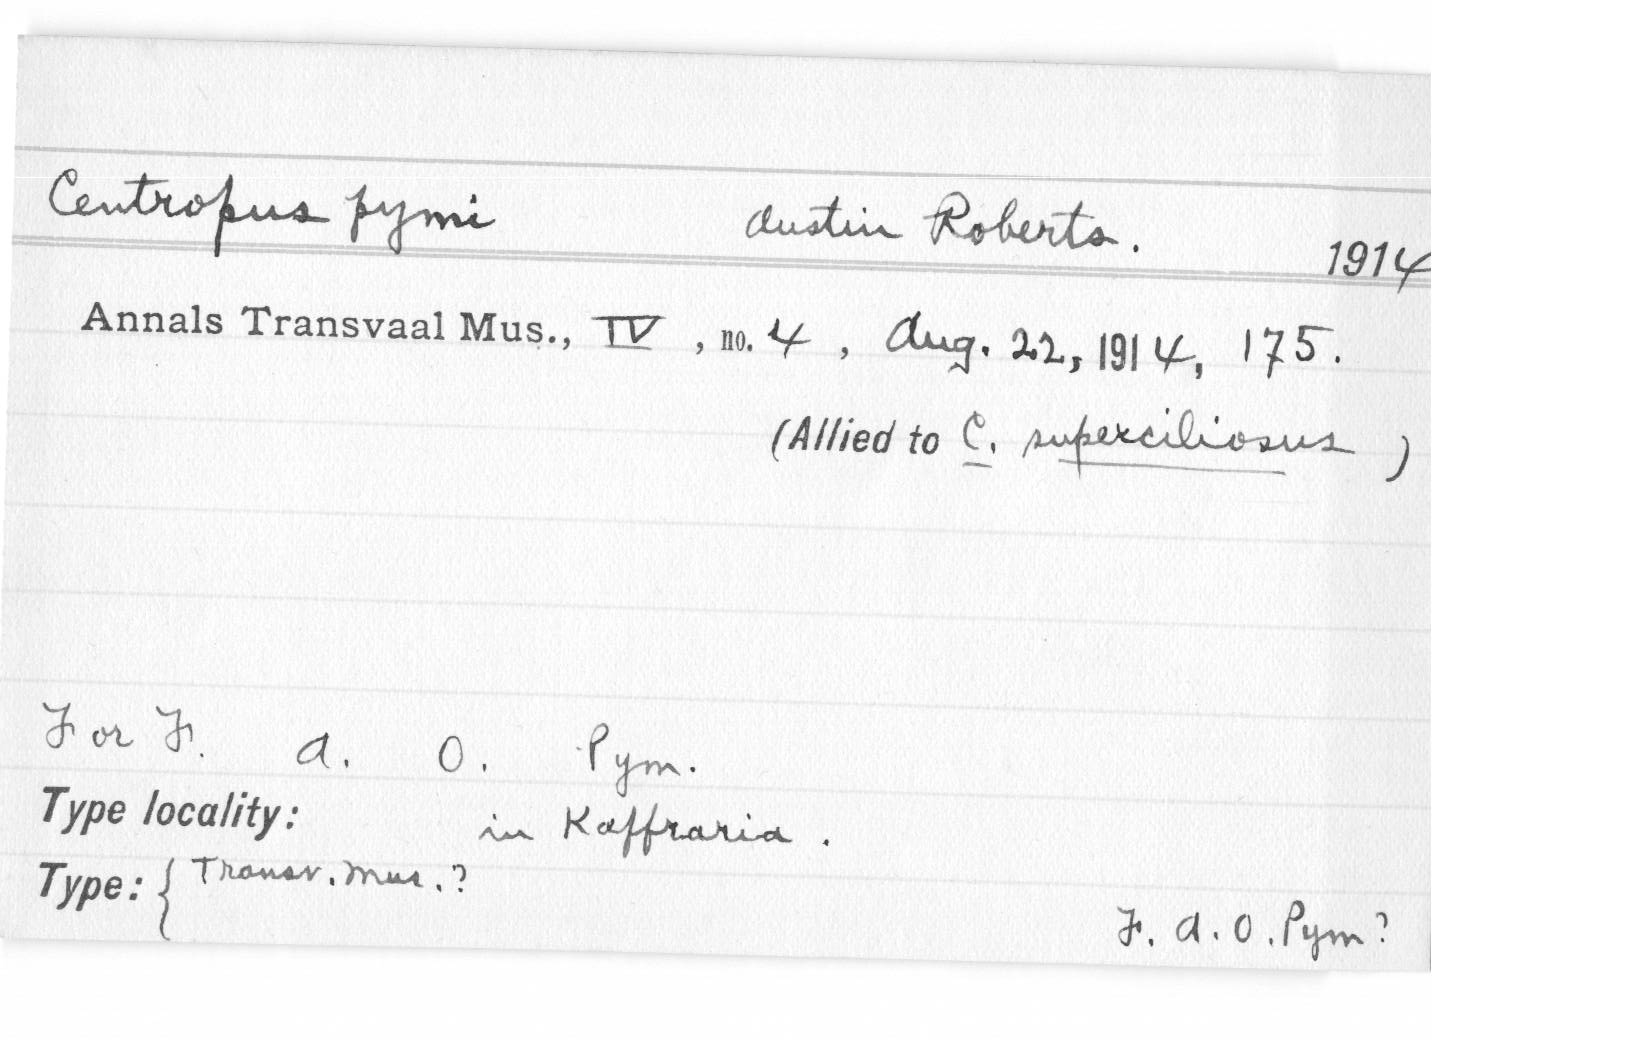 Centropus pymi Austin Roberts. 1914
Annals Transvaal Mus., IV, no. 4, Aug. 22, 1914, 175.
(Allied to C. superciliosus)
For F. A. O. Pym.
Type locality: in Kaffraria.
Type: { Transv. Mus.?
F. A. O. Pym?